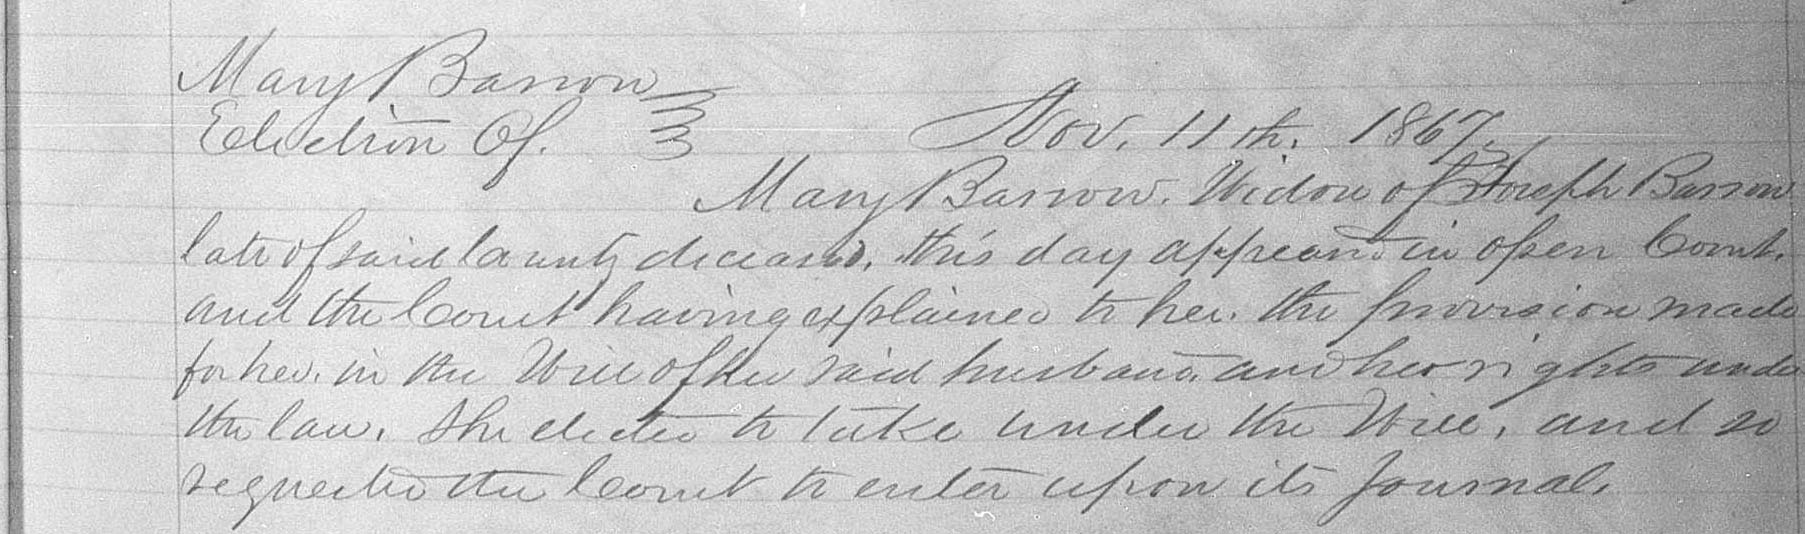 Mary Barrow
Election Of.
Nov. 11th. 1867.
Mary Barrow. Widow of Joseph Barrow
late of said County deceased, this day appeared in open Court.
and the Court having explained to her. the provision made
for her. in the Will of her said husband, and her rights under
the law. She elected to take under the Will, and so
requested the Court to enter upon its Journal.